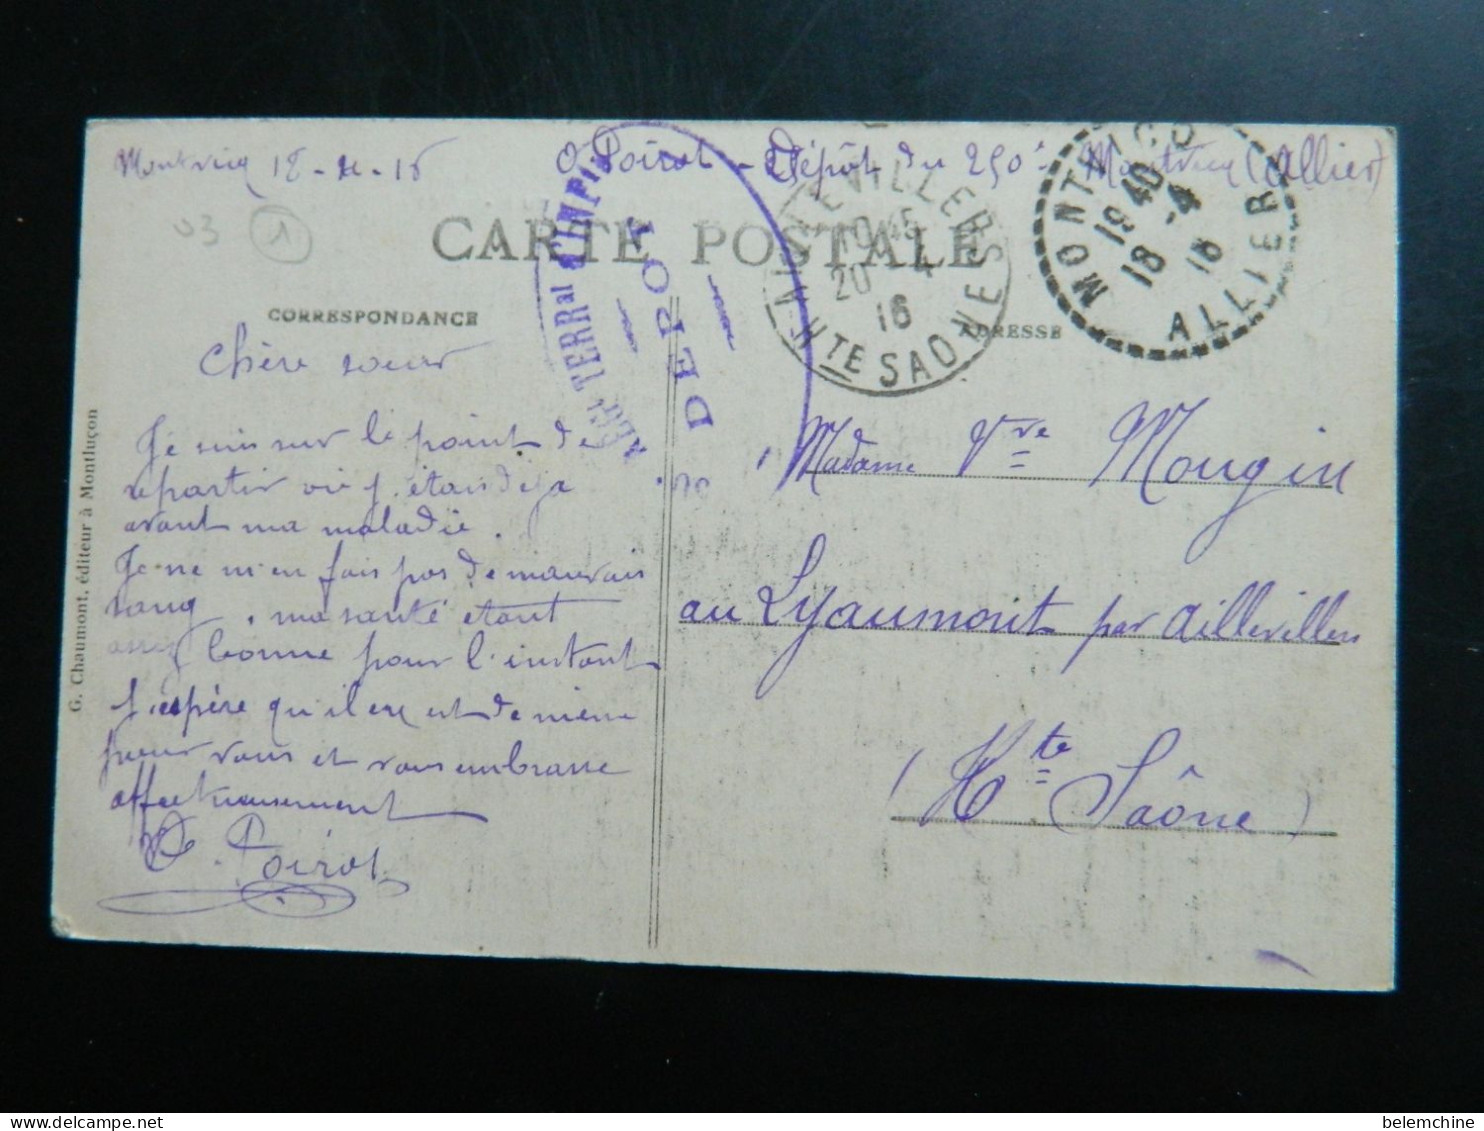 Montvicq 18-4-16
Poirot - Dépôt du 290e Montvicq (Allier)
03 1
CARTE POSTALE
CORRESPONDANCE
ADRESSE
MONTVICQ
19 40
18 -4
16
ALLIER
AILLEVILLERS
10 45
20 - 4
16
HTE SAONE
REGt TERRal D'INFie
DEPOT
Chère soeur
Je suis sur le point de
repartir où j'étais déjà
avant ma maladie.
Je ne m'en fais pas de mauvais
sang, ma santé étant
assez bonne pour l'instant
J'espère qu'il en est de même
pour vous et vous embrasse
affectueusement
Poirot
Madame Vve Mougin
au Lyaumont par Aillevillers
(Hte Saône)
G. Chaumont, éditeur à Montluçon
belemchine